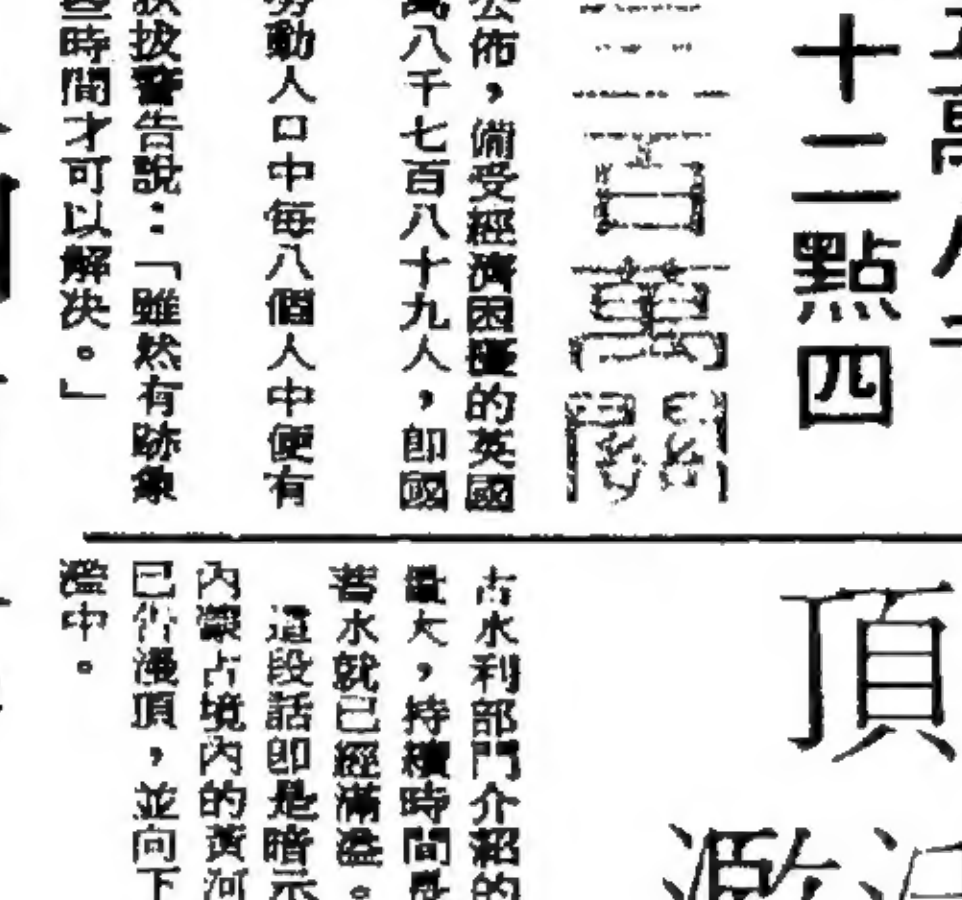 十二點四
三百萬關
公佈，備受經濟困擾的英國
萬八千七百八十九人，即國
勞動人口中每八個人中便有
狄拔警告說：「雖然有跡象
些時間才可以解決。」
頂
濫
古水利部門介紹的
量大，持續時間長
若水就已經滿溢。
這段話即是暗示
內蒙古境內的黃河
已咎漫頂，並向下
濫中。